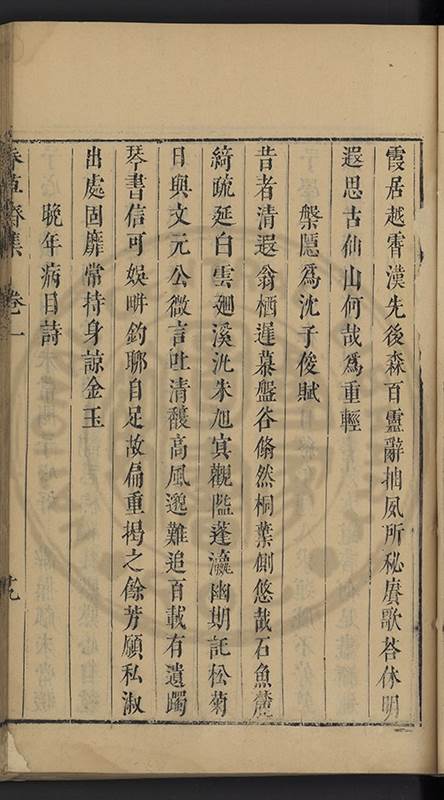 霞居越霄漢先後森百靈辭抽夙所秘賡歌荅休明
遐思古仙山何哉爲重輕
槃隱爲沈子俊賦
昔者清遐翁栖遲慕盤谷翛然桐葉側悠哉石魚麓
綺疏延白雲廻溪汎朱旭寘觀隘蓬瀛幽期託松菊
日與文元公微言吐清馥高風邈難追百載有遺躅
琴書信可娛畊釣聊自足故扁重揭之餘芳願私淑
出處固靡常持身諒金玉
晚年病目詩
春草齋集 卷一